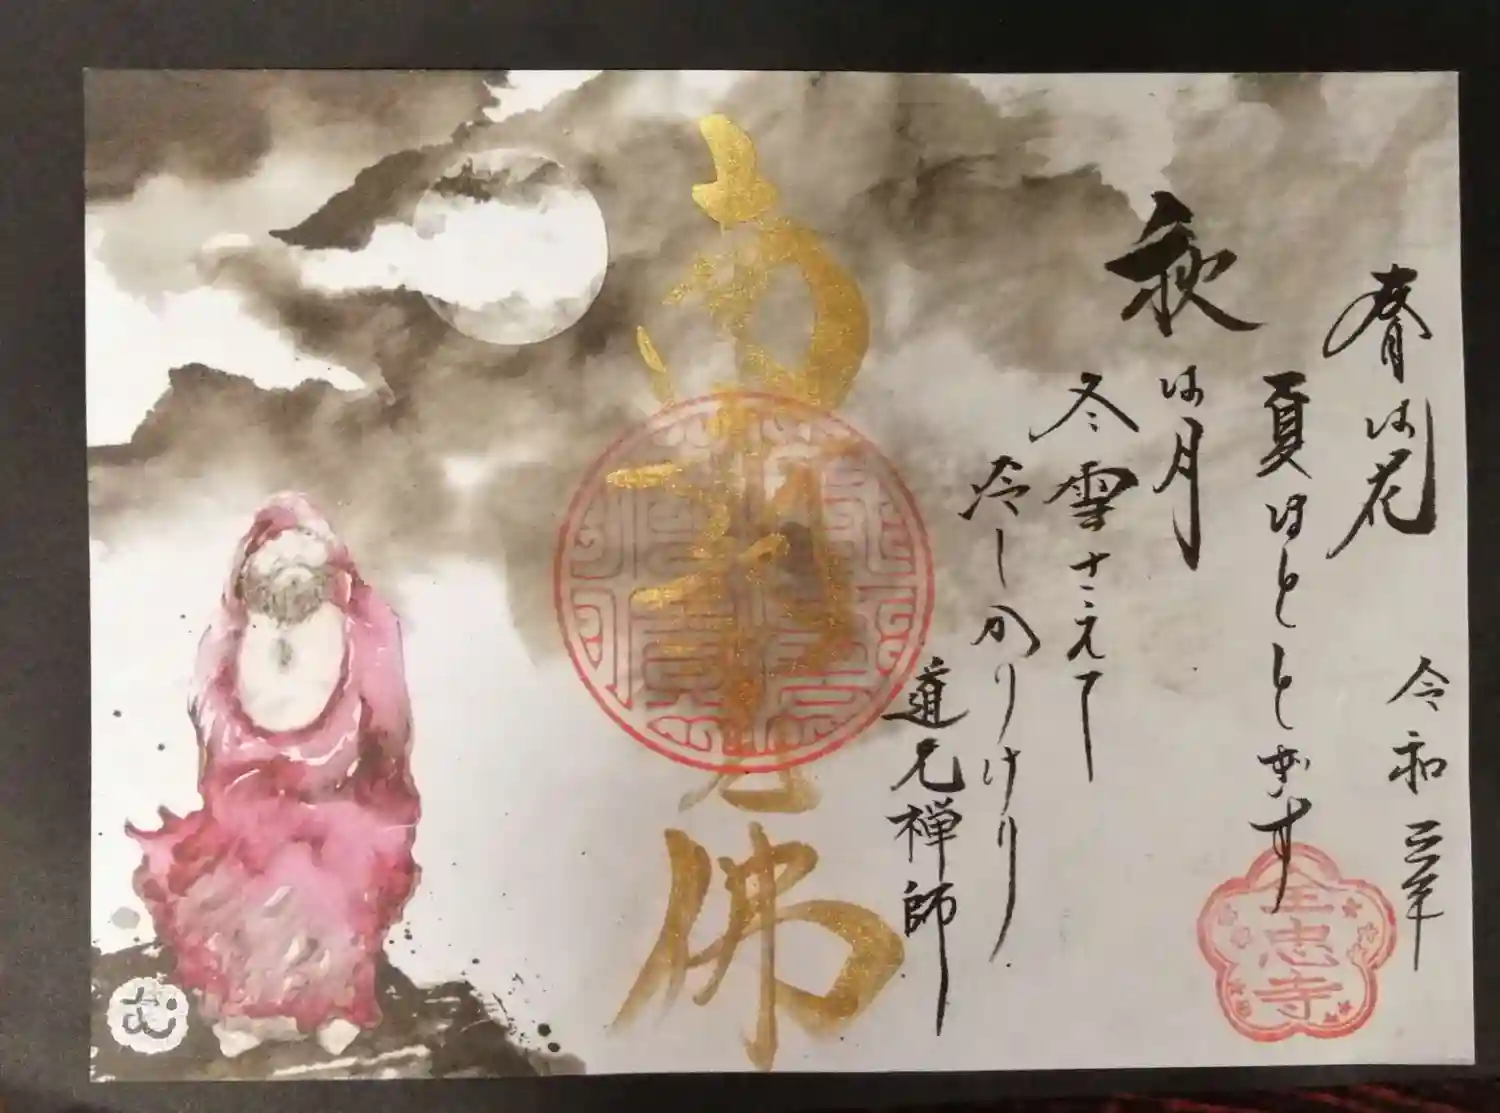 春は花
夏ほととぎす
秋は月
冬雪さえて
冷しかりけり
道元禅師
令和三年
全忠寺
佛
む